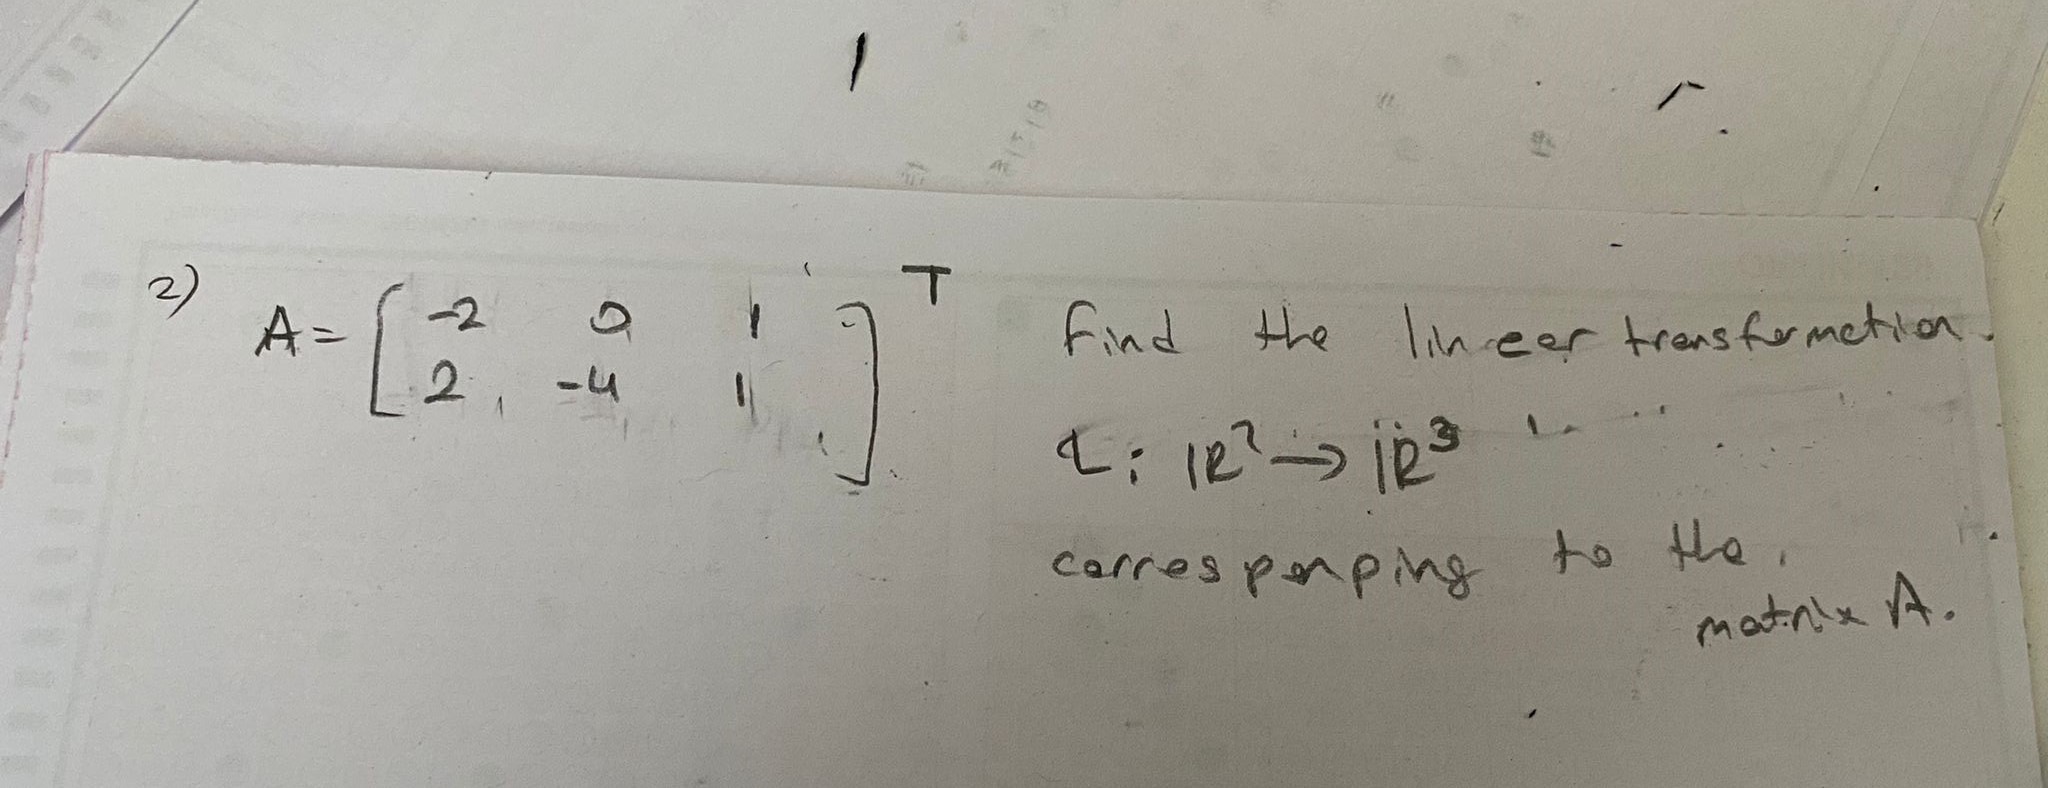 2) A = [ -2 0 1 ]ᵀ Find the linear transformation.
[ 2 -4 1 ]
L: ℝ² → ℝ³
correspenping to the
matrix A.